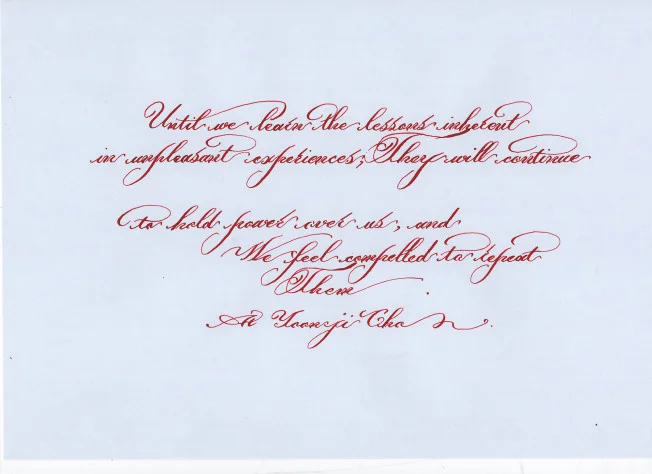 Until we learn the lessons inherent
in unpleasant experiences, They will continue
to hold power over us, and
We feel compelled to repeat
Them.
Yoonji Cho